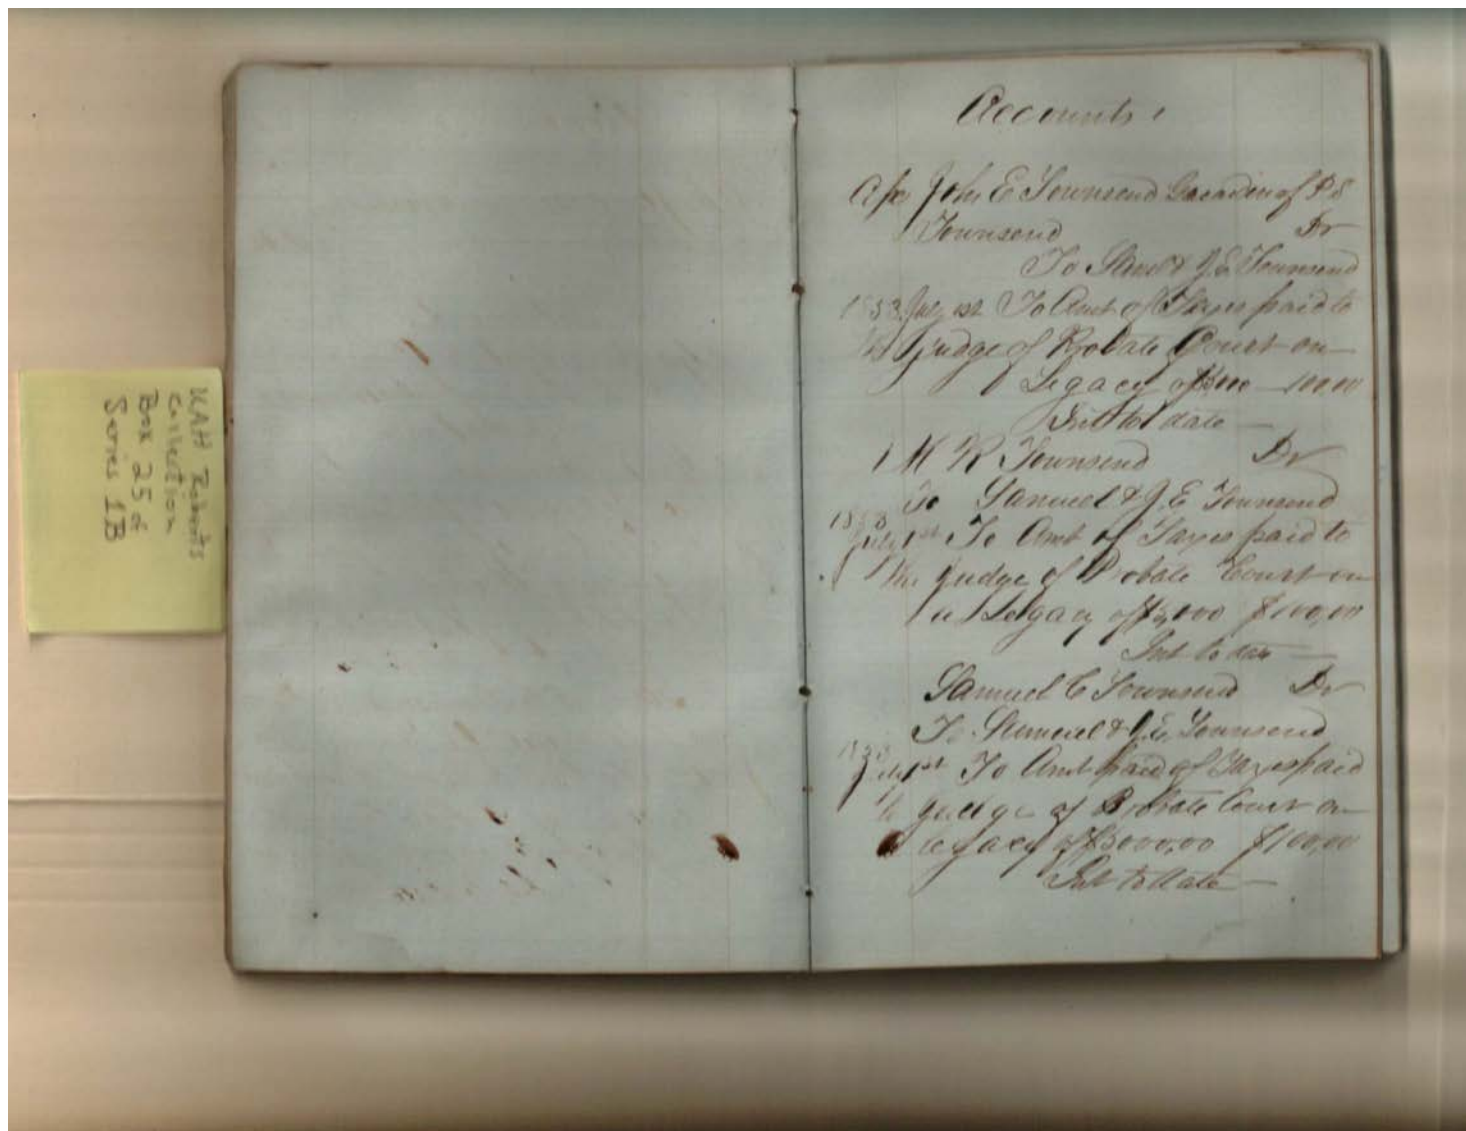 UAH Roberts
Collection
Box 25 of
Series 1B
Accounts
John E Townsend Guardien of P S
Townsend Dr
To Saml & J. E. Townsend
1853 July 1st To Amt of Taxes paid to
the Judge of Probate Court on
Legacy of 100.00
Int to date
M R Townsend Dr
To Samuel & J. E Townsend
1853
July 1st To Amt of Taxes paid to
the Judge of Probate Court on
a Legacy of $5,000 $100,00
Int to date
Samuel C Townsend Dr
To Samuel & J. E. Townsend
1853
July 1st To Amt paid of Taxes paid
to Judge of Probate Court on
legacy of $5000,00 $100,00
Int to date